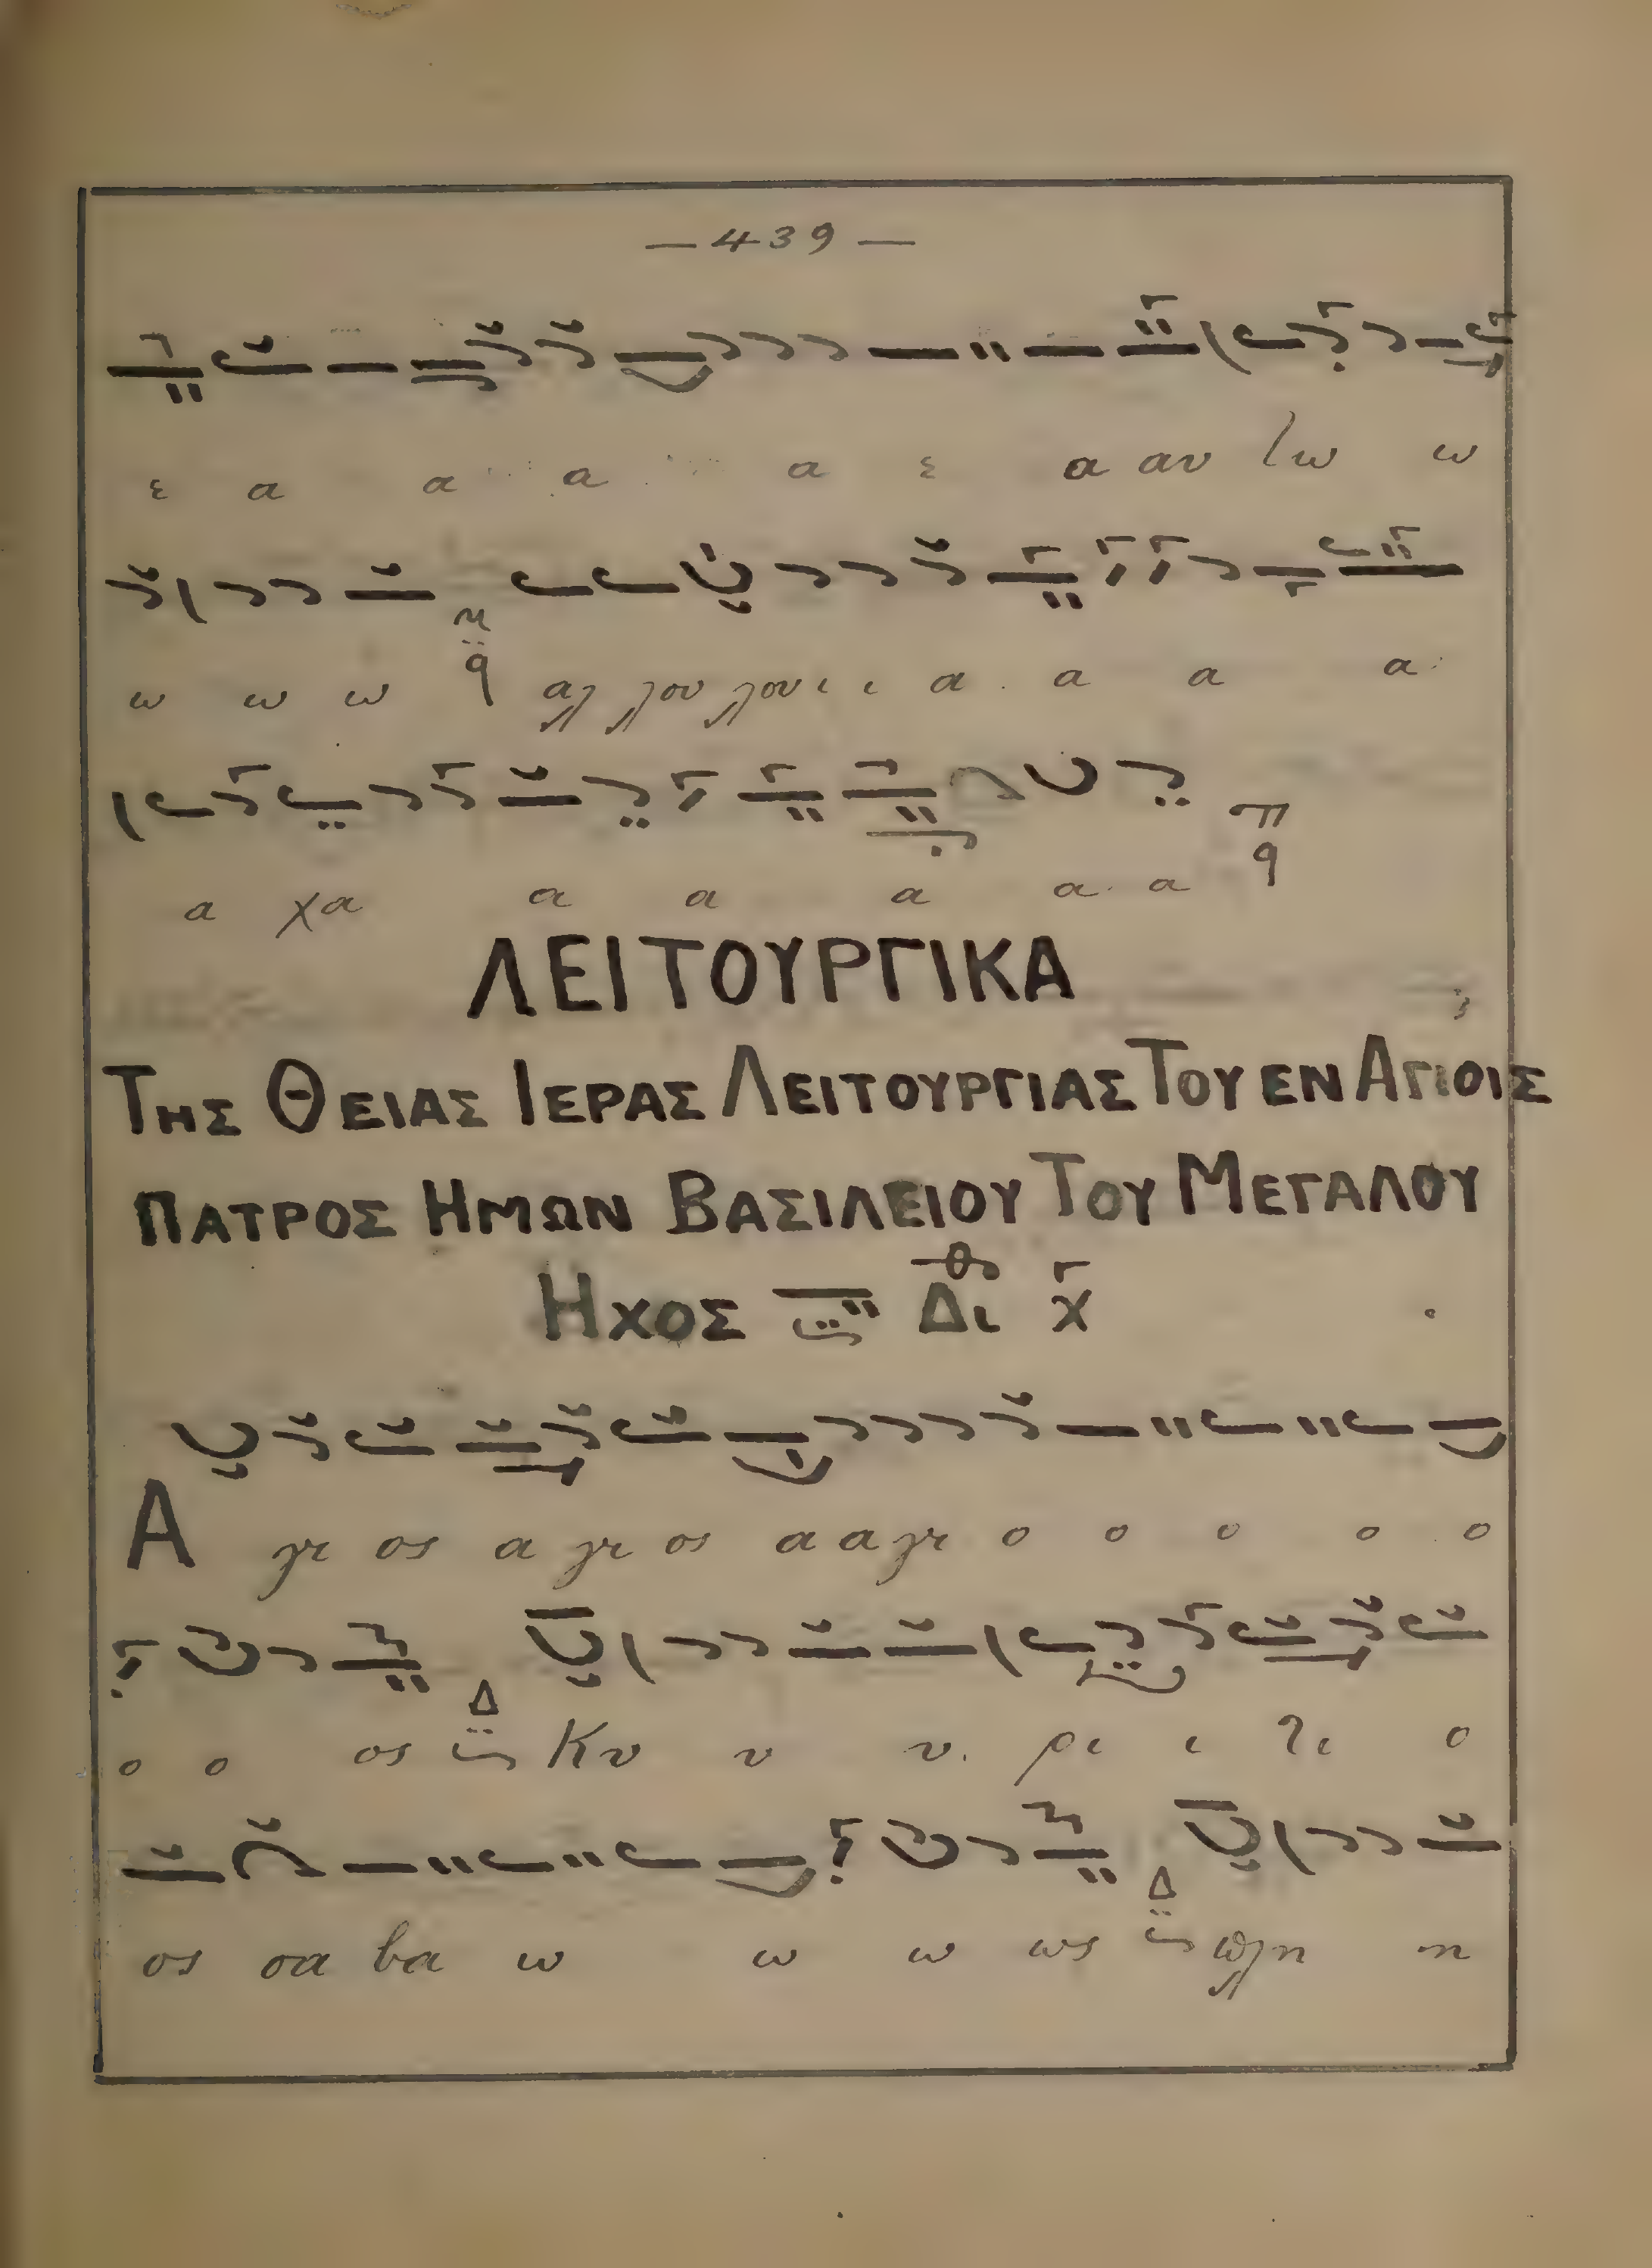 — 439 —
ε α α α α ε α αυ τω ω
ω ω ω αλ λου λου ι ι α α α α
α χα α α α α α
ΛΕΙΤΟΥΡΓΙΚΑ
ΤΗΣ ΘΕΙΑΣ ΙΕΡΑΣ ΛΕΙΤΟΥΡΓΙΑΣ ΤΟΥ ΕΝ ΑΓΙΟΙΣ
ΠΑΤΡΟΣ ΗΜΩΝ ΒΑΣΙΛΕΙΟΥ ΤΟΥ ΜΕΓΑΛΟΥ
ΗΧΟΣ Δι χ
Α γι ος α γι ος α α γι ο ο ο ο ο
ο ο ος Δ Κυ υ υ ρι ι τι ο
ος σα βα ω ω ω ως Δ πλη η